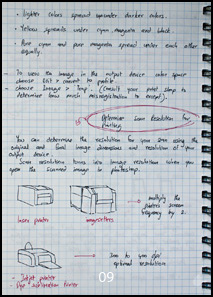 - lighter colors spread under darker colors.
- Yellow spreads under cyan, magenta and black.
- Pure cyan and pure magenta spread under each other equally.
- To view the image in the output device color space
choose Edit > convert to profile
choose Image > Trap. (Consult your print shop to
determine how much misregistration to expect).
Determine Scan Resolution for
You can determine the resolution for your scan using the
original and final image dimensions and resolution of your
output device.
Scan resolution turns into image resolution when you
open the scanned image in photoshop.
multiply the
printer's screen
frequency by 2.
laser printer
imagesetters
optimal resolution
09
- Inkjet printer
- Dye sublimation printer